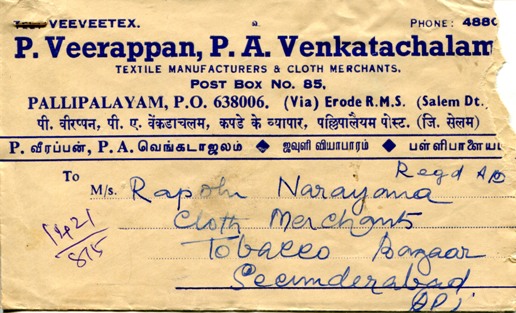 VEEVEETEX. PHONE: 488
P. Veerappan, P. A. Venkatachalam
TEXTILE MANUFACTURERS & CLOTH MERCHANTS.
POST BOX NO. 85,
PALLIPALAYAM, P.O. 638006. (Via) Erode R.M.S. (Salem Dt.)
पी. वीरप्पन, पी. ए. वेंकडाचलम, कपडे के व्यापार, पल्लिपालैयम पोस्ट. (जि. सेलम)
P. வீரப்பன், P.A. வெங்கடாஜலம் ◆ ஜவுளி வியாபாரம் ◆ பள்ளிபாளைய
Regd AD
To
M/s. Rapolu Narayana
Cloth Merchants
Tobacco Bazaar
Secunderabad
1421
875